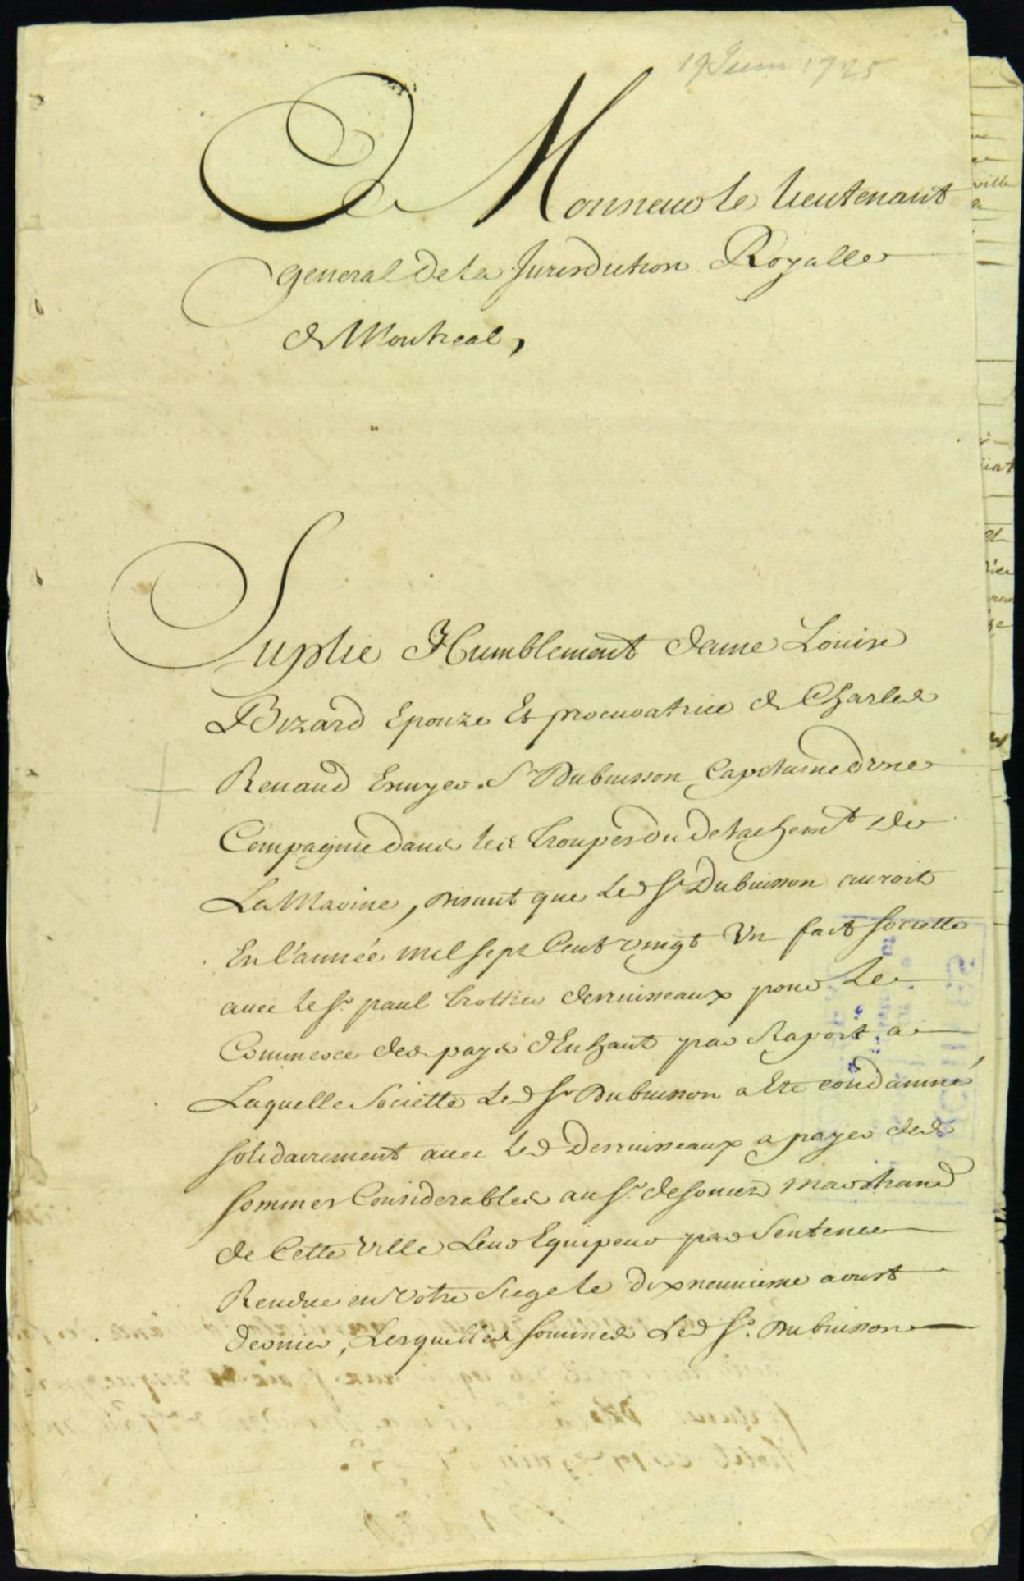 19 Juin 1725
A Monsieur le lieutenant
general de la Jurisdiction Royalle
de Montreal,
Suplie Humblement dame Louise
Bizard Epouze Et procuratrice de Charles
Renaud Ecuyer Sr. Dubuisson Capitaine d'une
Compagnie dans les troupes du detachemt. de
La Marine, disant que Led. Sr. Dubuisson auroit
En l'année mil sept Cent vingt Un fait Societte
avec le Sr. paul trottier desruisseaux pour Le
Commerce des pays d'Enhaut par Raport a
Laquelle Societte Led. Sr. Dubuisson a Eté condamné
solidairement avec Led. Desruisseaux a payer des
sommes Considerables au Sr. marchand
de Cette Ville Leur Equipeur par Sentence
Rendue en votre Siege le dixneuvieme aoust
dernier, Lesquelles sommes Led. Sr. Dubuisson